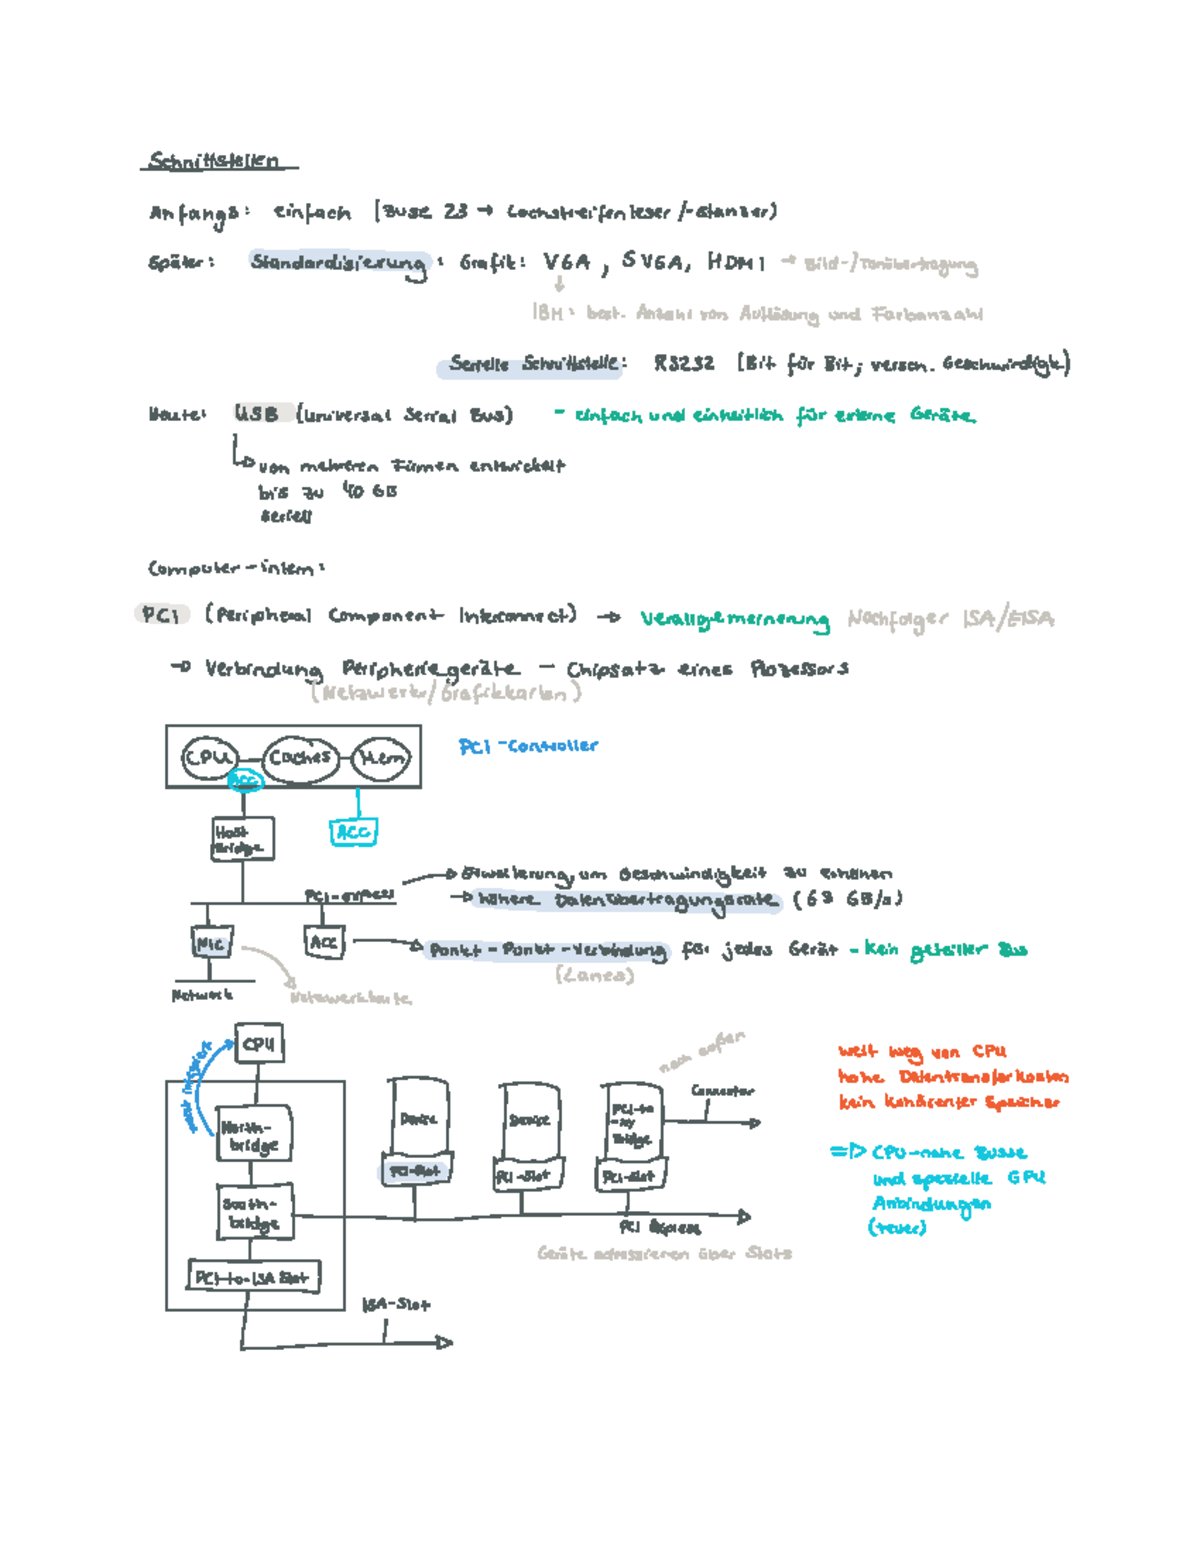 Schnittstellen
Anfangs: einfach (Zuse Z3 → Lochstreifenleser/-stanzer)
Später: Standardisierung: Grafik: VGA, SVGA, HDMI → Bild-/Tonübertragung
IBM: best. Anzahl von Auflösung und Farbanzahl
Serielle Schnittstelle: RS232 (Bit für Bit, versch. Geschwindigk.)
Heute: USB (Universal Serial Bus) - einfach und einheitlich für externe Geräte
von mehreren Firmen entwickelt
bis zu 40 GB
seriell
Computer-intern:
PCI (Peripheral Component Interconnect) → Verallgemeinerung Nachfolger ISA/EISA
→ Verbindung Peripheriegeräte - Chipsatz eines Prozessors
(Netzwerk/Grafikkarten)
CPU Caches Mem
PCI-Controller
ACC
Host Bridge
ACC
PCI-express
→ Erweiterung, um Geschwindigkeit zu erhöhen
→ höhere Datenübertragungsrate (63 GB/s)
NIC
ACC
Punkt-Punkt-Verbindung für jedes Gerät - kein geteilter Bus
(Lanes)
Network
Netzwerkkarte
CPU
nach außen
Connector
weit weg von CPU
hohe Datentransferkosten
kein kohärenter Speicher
North-
bridge
Device
Device
PCI-to
-xy
Bridge
PCI-Slot
PCI-Slot
PCI-Slot
⇒ CPU-nahe Busse
und spezielle GPU
Anbindungen
(teuer)
South-
bridge
PCI Express
Geräte adressieren über Slots
PCI-to-ISA Slot
ISA-Slot